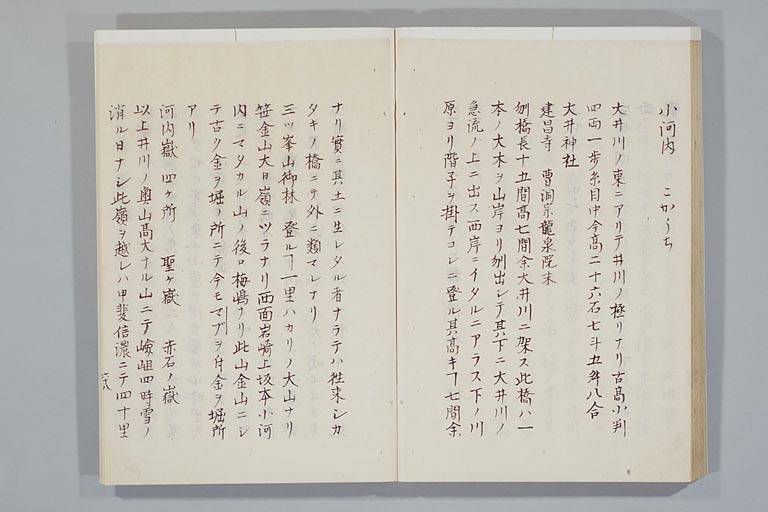 小河内　こかうち
大井川ノ東ニアリテ井川ノ極リナリ古高小判
四両一歩糸目中今高二十六石七斗五舛八合
大井神社
建昌寺　曹洞宗龍泉院末
刎橋長十五間高七間余大井川ニ架ス此橋ハ一
本ノ大木ヲ山岸ヨリ刎出シテ其下ニ大井川ノ
急流ノ上ニ出ス西岸ニイタルニアラス下ノ川
原ヨリ階子ヲ掛テコレニ登ル其高キヿ七間余
ナリ實ニ其土ニ生レタル者ナラテハ徃来シカ
タキノ橋ニテ外ニ類マレナリ
三ツ峯山御林　登ルヿ一里ハカリノ大山ナリ
笹金山大日嶺ニツラナリ西面岩崎上坂本小河
内ニマタカル山ノ後ロ梅嶋ナリ此山金山ニシ
テ古ク金ヲ堀ノ所ニテ今モマブヲ舟金ヲ堀所
アリ
河内嶽　四ケ所　聖ケ嶽　赤石ノ嶽
以上井川ノ奥山高大ナル山ニテ嶮岨四時雪ノ
消ル日ナシ此嶺ヲ越レハ甲斐信濃ニテ四十里